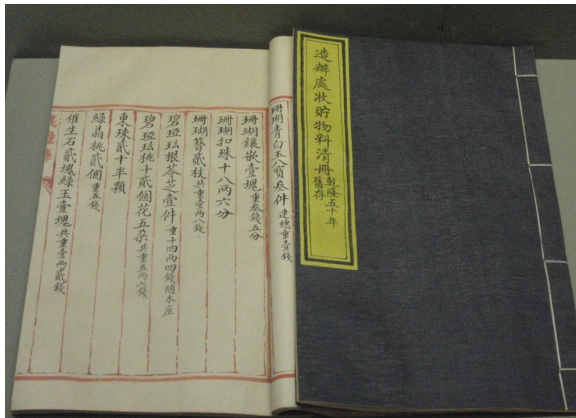 造辦處收貯物料清冊
乾隆五十年
舊存
珊瑚青白玉八寶叁件連穗重壹錢
珊瑚鑲嵌壹塊重叁錢五分
珊瑚扣珠十八兩六分
珊瑚簪貳枝共重壹兩八錢
碧䂳玜根苓芝壹件重十四兩四錢随木座
碧䂳玜桃十貳個花五朶共重五兩七錢
東珠貳十半顆
綠晶桃貳個重五錢
催生石貳塊綠玉壹塊共重壹兩貳錢